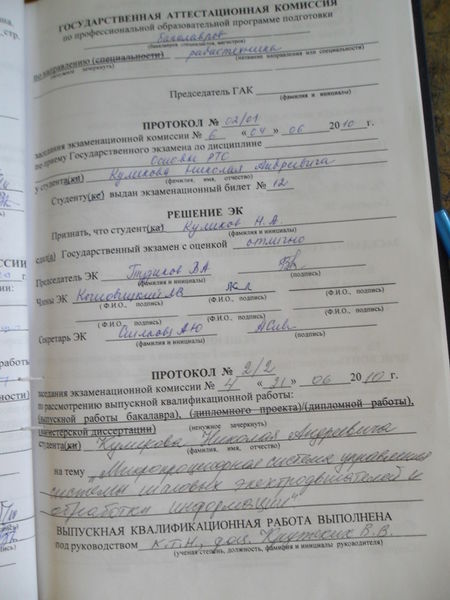 ГОСУДАРСТВЕННАЯ АТТЕСТАЦИОННАЯ КОМИССИЯ
по профессиональной образовательной программе подготовки
бакалавров
(бакалавров, специалистов, магистров)
по направлению (специальности) радиотехника
(ненужное зачеркнуть) (название направления или специальности)
Председатель ГАК
(фамилия и инициалы)
ПРОТОКОЛ № 02/01
заседания экзаменационной комиссии № 6 « 04 » 06 2010 г.
по приему Государственного экзамена по дисциплине
Основы РТС
у студента(ки) Куликова Николая Андреевича
(фамилия, имя, отчество)
Студенту(ке) выдан экзаменационный билет № 12
РЕШЕНИЕ ЭК
Признать, что студент(ка) Куликов Н.А.
(фамилия и инициалы)
сдал(а) Государственный экзамен с оценкой отлично
Председатель ЭК В.А
(фамилия и инициалы) (подпись)
Члены ЭК
(Ф.И.О., подпись) (Ф.И.О., подпись)
(Ф.И.О., подпись) (Ф.И.О., подпись)
Секретарь ЭК А.Ю
(фамилия и инициалы) (подпись)
ПРОТОКОЛ № 2/2
заседания экзаменационной комиссии № 4 « 21 » 06 2010 г.
по рассмотрению выпускной квалификационной работы:
(выпускной работы бакалавра), (дипломного проекта)/(дипломной работы),
(магистерской диссертации) (ненужное зачеркнуть)
студента(ки) Куликова Николая Андреевича
(фамилия, имя, отчество)
на тему "Микропроцессорная система управления
системы шаговых электродвигателей и
обработки информации"
ВЫПУСКНАЯ КВАЛИФИКАЦИОННАЯ РАБОТА ВЫПОЛНЕНА
под руководством к.т.н, доц. В.В.
(ученая степень, должность, фамилия и инициалы руководителя)